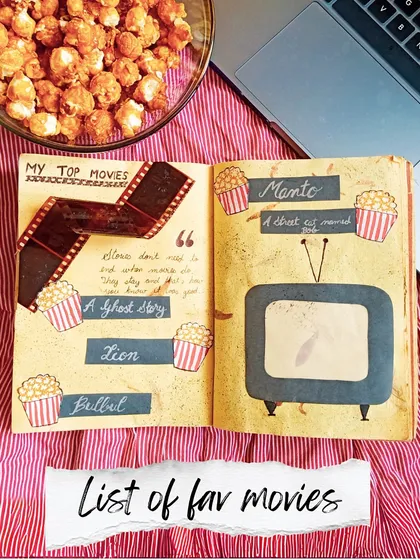 MY TOP MOVIES
“
Stories don't need to
end when movies do.
They stay and that's how
you know it was good.
A Ghost Story
Lion
Bulbul
Manto
A Street cat named
Bob
List of fav movies